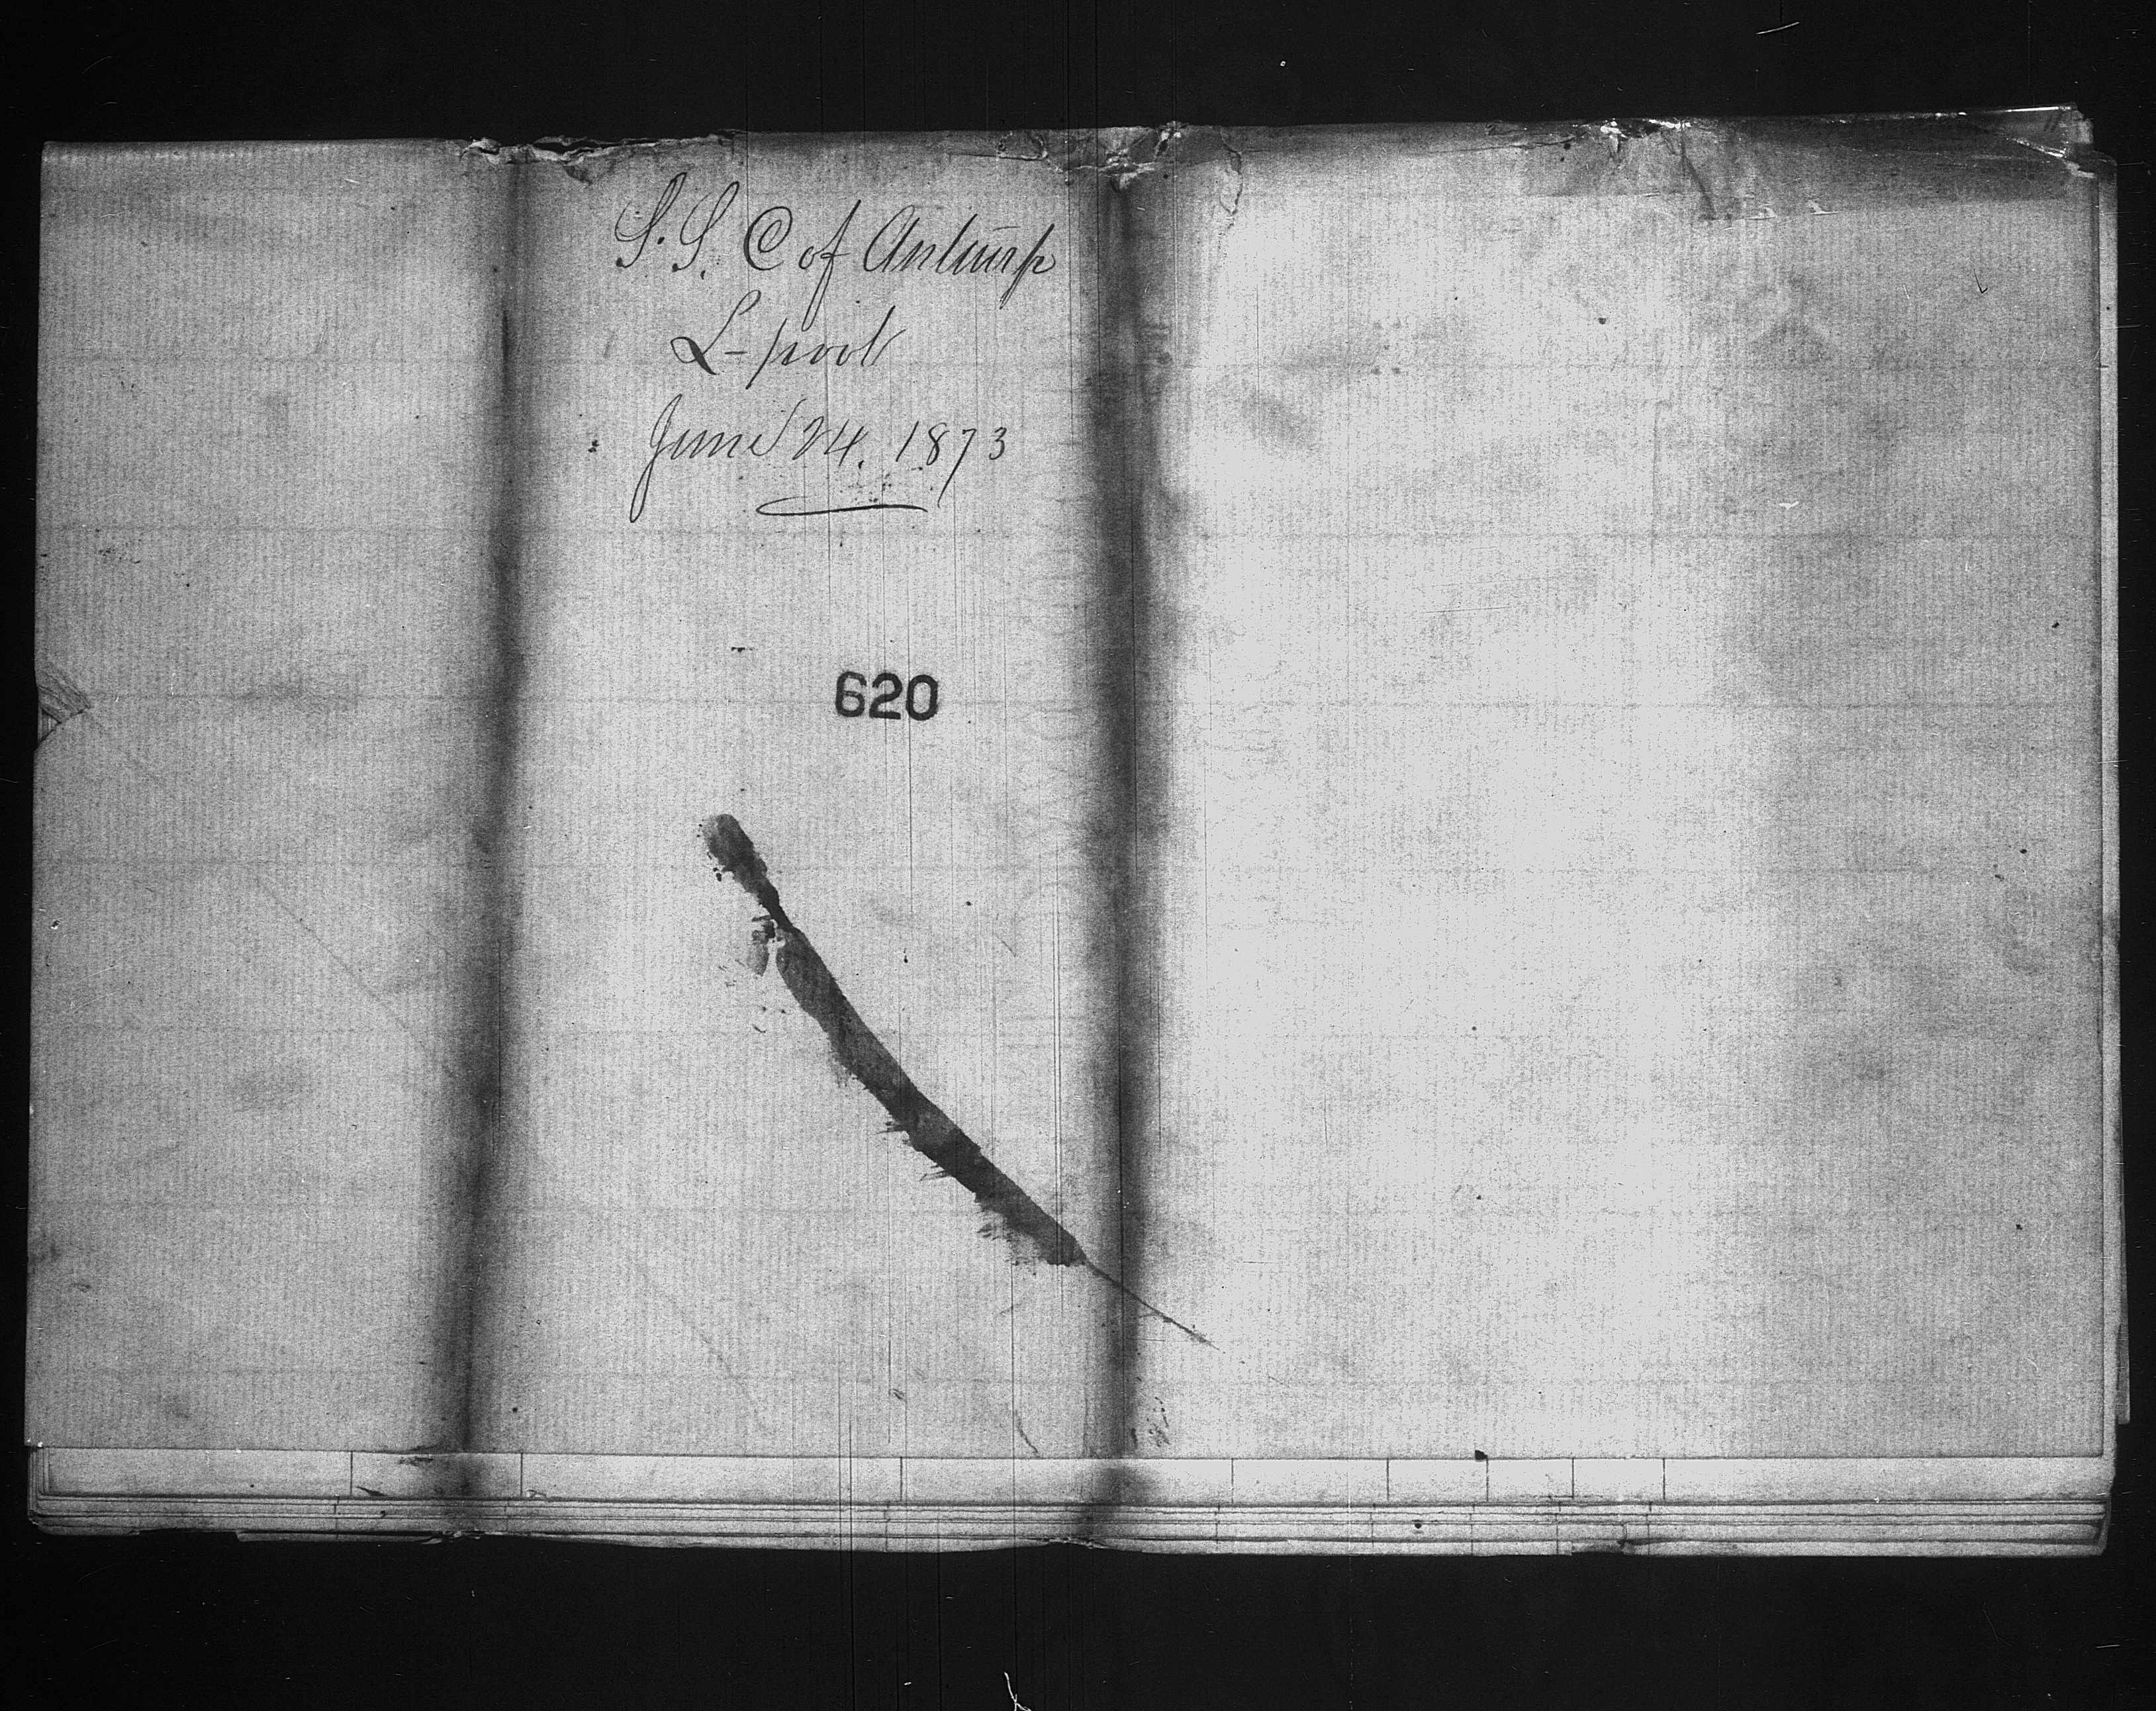 S.S. C of Antwerp
L-pool
June 24. 1873
620